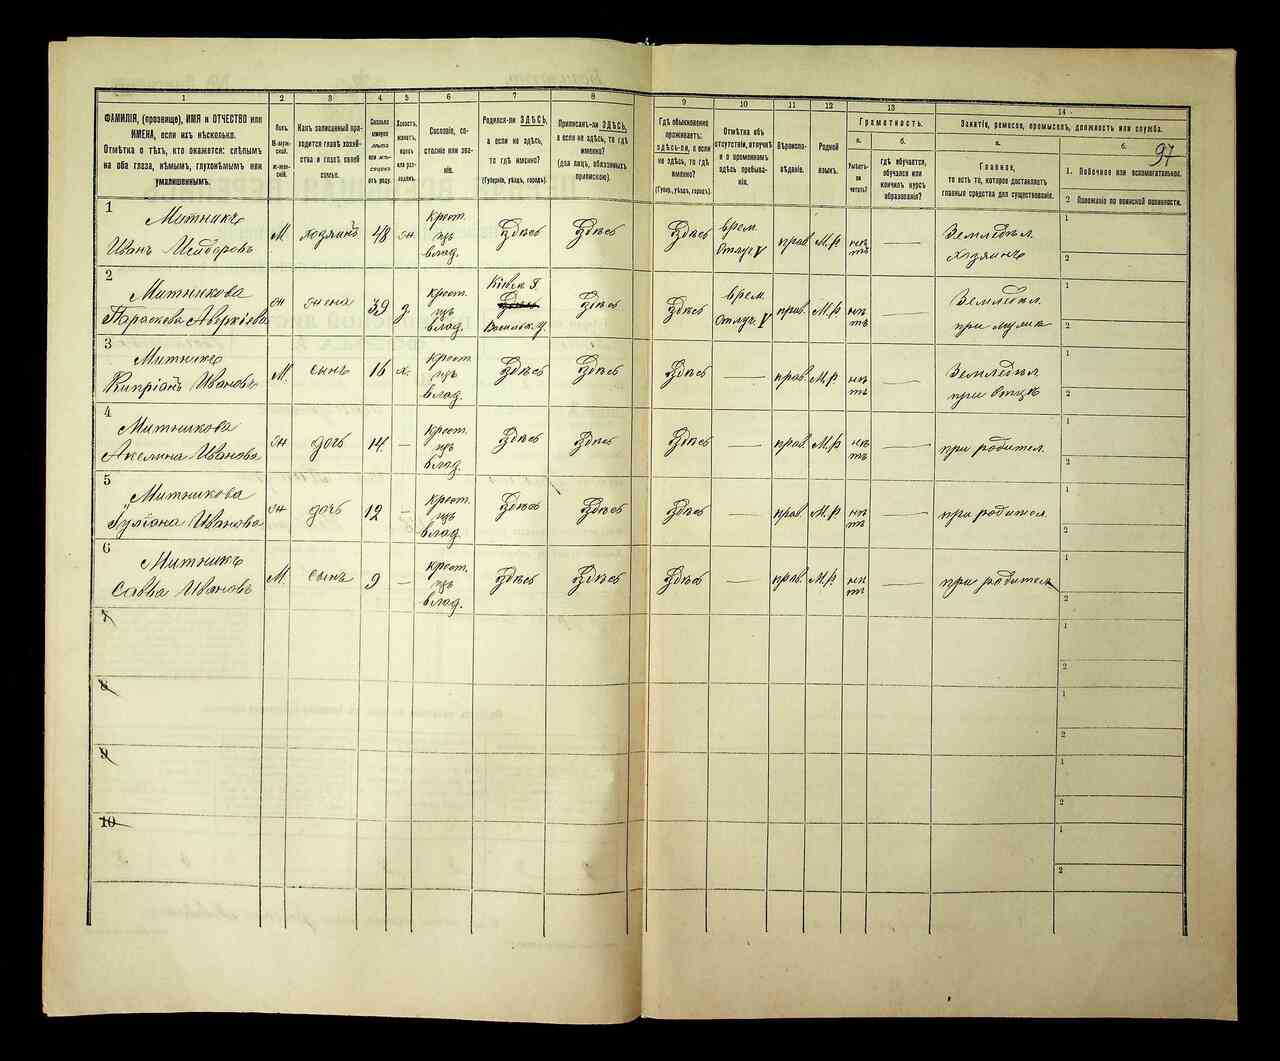 97
1 2 3 4 5 6 7 8 9 10 11 12 13 14
ФАМИЛІЯ, (прозвище), ИМЯ и ОТЧЕСТВО или
ИМЕНА, если ихъ нѣсколько.
Отмѣтка о тѣхъ, кто окажется: слѣпымъ
на оба глаза, нѣмымъ, глухонѣмымъ или
умалишеннымъ.
Полъ.
Какъ записанный при-
ходится главѣ хозяй-
ства и главѣ своей
семьи.
Сколько
минуло
лѣтъ
или мѣ-
сяцевъ
отъ роду.
Холостъ,
женатъ,
вдовъ
или раз-
веденъ.
Сословіе, со-
стояніе или зва-
ніе.
Родился-ли ЗДѢСЬ,
а если не здѣсь,
то гдѣ именно?
(Губернія, уѣздъ, городъ).
Приписанъ-ли ЗДѢСЬ,
а если не здѣсь, то гдѣ
именно?
(для лицъ, обязанныхъ
припискою).
Гдѣ обыкновенно
проживаетъ:
здѣсь-ли, а если
не здѣсь, то гдѣ
именно?
(Губер., уѣздъ, городъ).
Отмѣтка объ
отсутствіи, отлучкѣ
и о временномъ
здѣсь пребыва-
ніи.
Вѣроиспо-
вѣданіе.
Родной
языкъ.
Грамотность.
а.
Умѣетъ-
ли
читать?
б.
гдѣ обучается,
обучался или
кончилъ курсъ
образованія?
Занятіе, ремесло, промыселъ, должность или служба.
а.
Главное,
то есть то, которое доставляетъ
главныя средства для существованія.
б.
1. Побочное или вспомогательное.
2 Положеніе по воинской повинности.
1
Митникъ
Иванъ Исидоровъ
М.
хозяинъ
48
жн.
Крест.
изъ
влад.
Здѣсь
Здѣсь
Здѣсь
врем.
Отлуч V
прав.
М.р
нѣ
тъ
—
Земледѣл.
хозяинъ
1
2
2
Митникова
Параскева Аверкіева
жн
жена
39
з.
Крест.
изъ
влад.
Кіевск. г.
Здѣсь
Васильк. у.
Здѣсь
Здѣсь
врем.
Отлуч. V
прав.
М.р.
нѣ
тъ
—
Земледѣл.
при мужѣ
1
2
3
Митникъ
Кипріянъ Ивановъ
М.
сынъ
16
х.
Крест.
изъ
влад.
Здѣсь
Здѣсь
Здѣсь
—
прав.
М.р
нѣ
тъ
—
Земледѣл.
при отцѣ
1
2
4
Митникова
Акелина Иванова
жн
дочь
14.
—
Крест.
изъ
влад.
Здѣсь
Здѣсь
Здѣсь
—
прав.
М.р.
нѣ
тъ
—
при родител.
1
2
5
Митникова
Гуліана Иванова
жн
дочь
12
—
Крест.
изъ
влад.
Здѣсь
Здѣсь
Здѣсь
—
прав.
М.р.
нѣ
тъ
—
при родител.
1
2
6
Митникъ
Савва Ивановъ
М.
сынъ
9
—
Крест.
изъ
влад.
Здѣсь
Здѣсь
Здѣсь
—
прав.
М.р.
нѣ
тъ
—
при родител
1
2
7
1
2
8
1
2
9
1
2
10
1
2